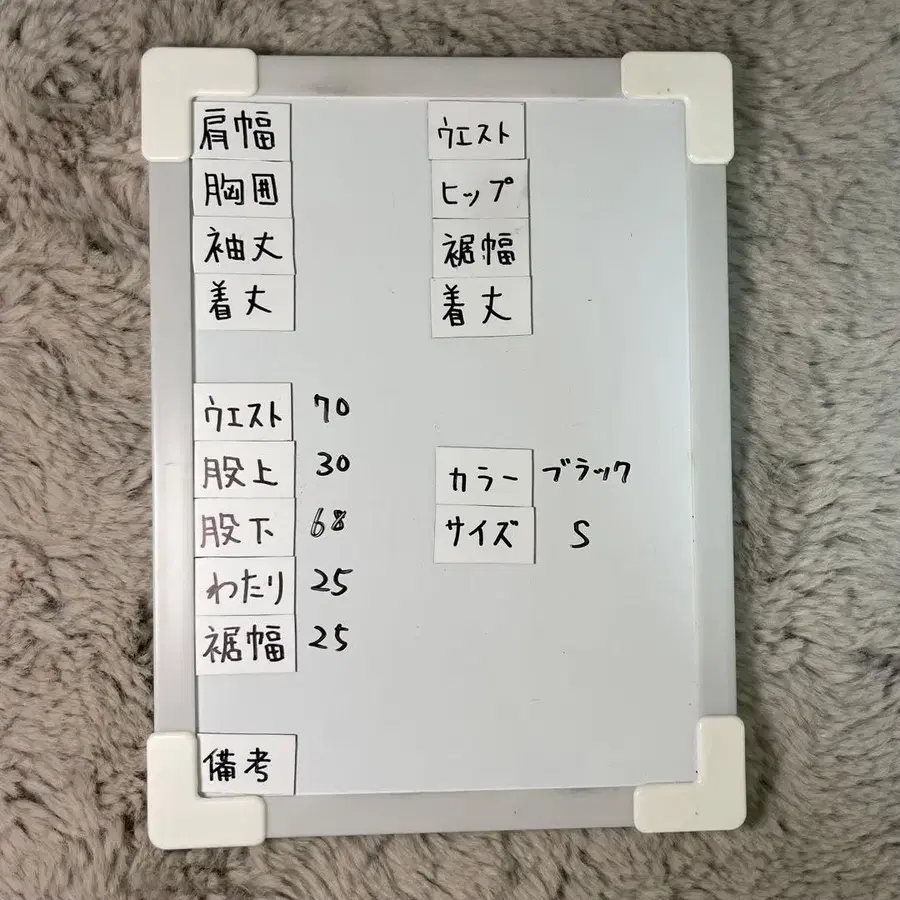 肩幅
胸囲
袖丈
着丈
ウエスト
ヒップ
裾幅
着丈
ウエスト 70
股上 30
股下 68
わたり 25
裾幅 25
カラー ブラック
サイズ S
備考